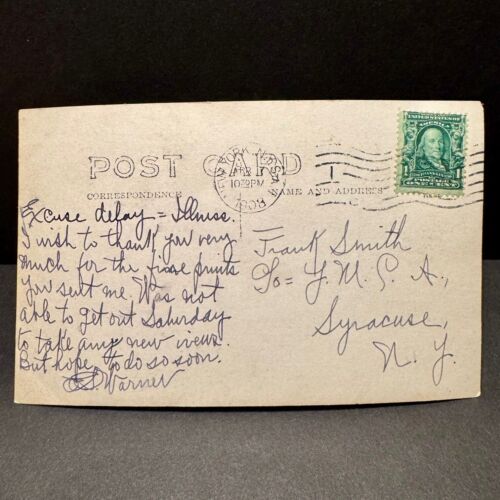 POST CARD
CORRESPONDENCE
NAME AND ADDRESS
NEW YORK
10 PM
1908
1
C
UNITED STATES OF AMERICA
FRANKLIN
1 1
POSTAGE
ONE CENT
Excuse delay = Illness.
I wish to thank you very
much for the fine prints
you sent me. Was not
able to get out Saturday
to take any new views.
But hope to do so soon.
Warner
Frank Smith
Y.M.C.A,
Syracuse,
N.Y.